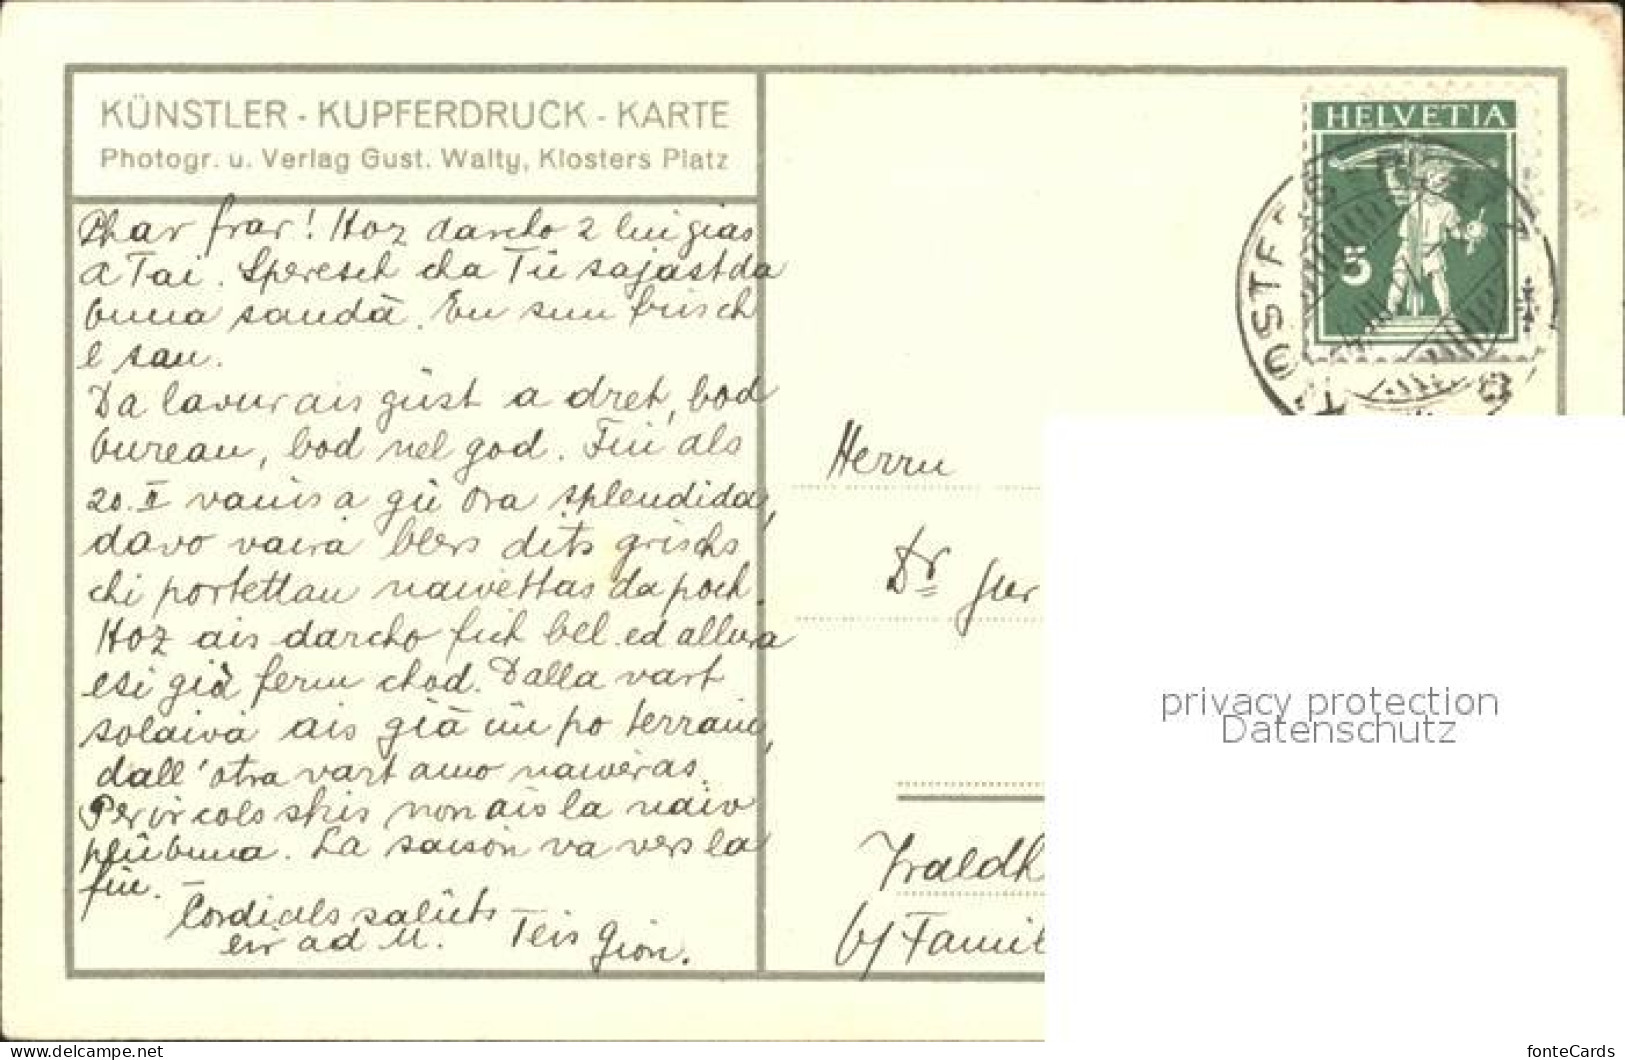 KÜNSTLER - KUPFERDRUCK - KARTE
Photogr. u. Verlag Gust. Walty, Klosters Platz
HELVETIA
5
Char frar! Hoz darcho 2 lingias
a Tai. Speresch cha Tü sajast da
buna sandà. Eu sun frisch
e san.
Da lavur ais güst a dret, bod
bureau, bod nel god. Fin als
20. II vains a gü ora splendida,
davo vaira blers dits grischs
chi portettan naivettas da poch.
Hoz ais darcho fich bel ed allura
esi già ferm chod. Dalla vart
solaiva ais già ün po terrain,
dall'otra vart amo naiveras.
Per ir cols skis non ais la naiv
plü buna. La saison va vers la
fin.
Cordials salüts
eir ad M. Teis Gion.
Herrn
Dr
Waldh
b/ Famil
privacy protection
Datenschutz
delcampe.net
fonteCards